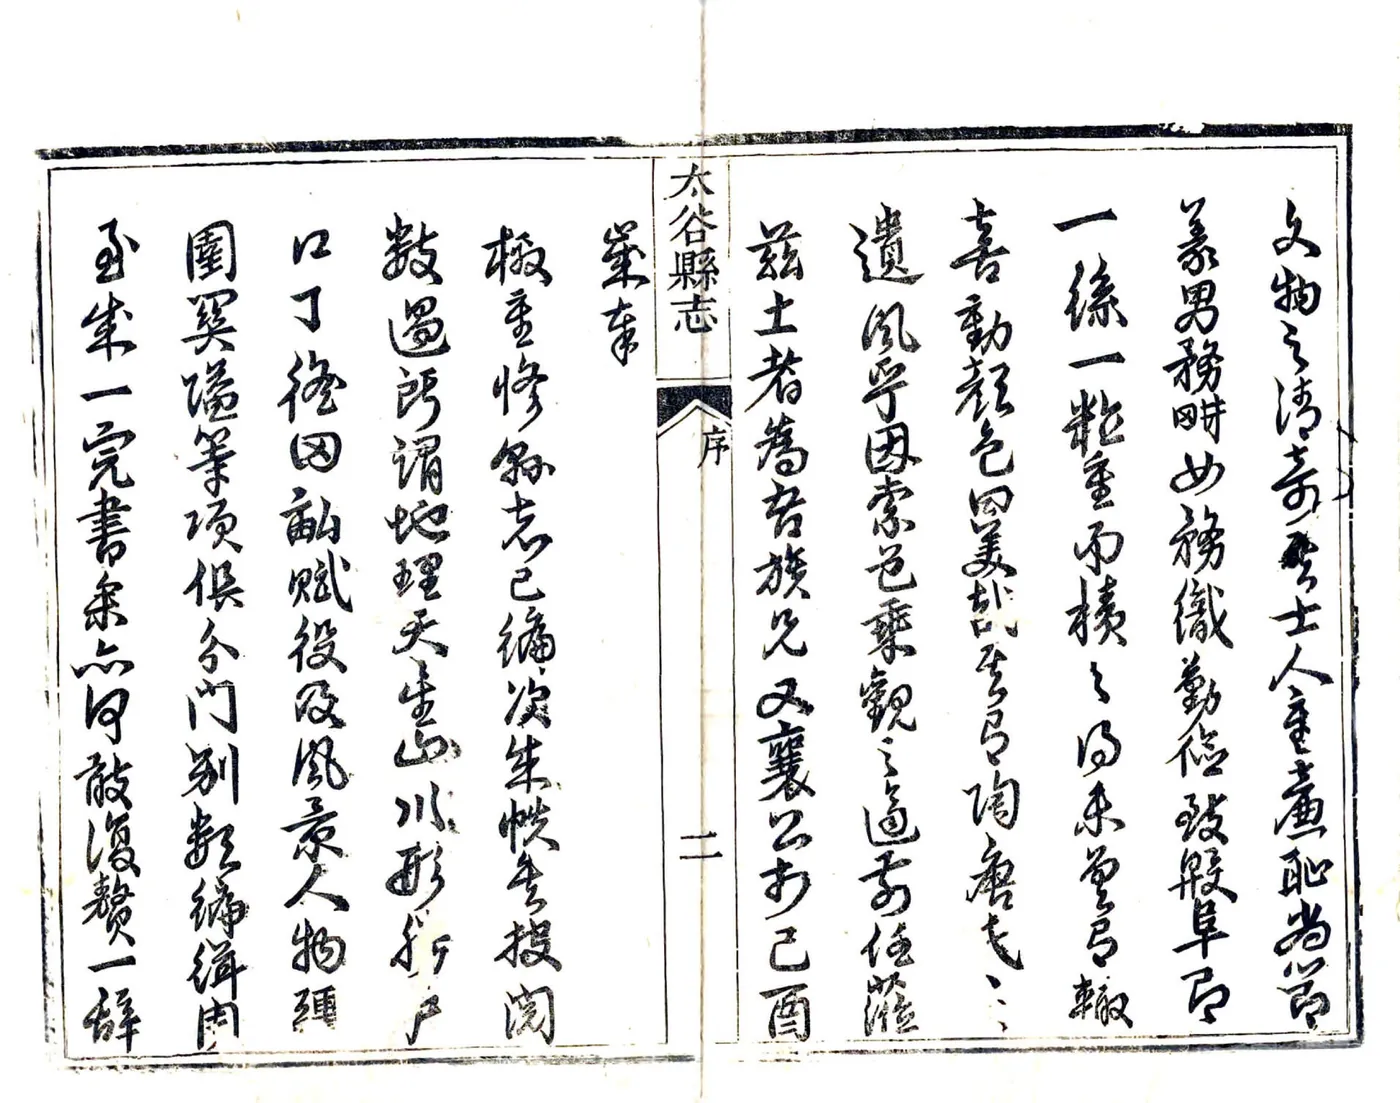 文物之清奇其士人重廉恥尚節
義男務畊女務織勤儉致殷阜即
一絲一粒重而積之得未曾有輙
喜動顏色曰美哉其有陶唐氏之
遺風乎因索邑乘觀之適前任蒞
茲土者為吾族兄又襄公於己酉
太谷縣志
序
二
歲奉
檄重修縣志已編次成帙矣披閱
數過所謂地理天星山川形勝戶
口丁徭田畝賦役及風景人物疆
圉異隘等項俱分門別類編緝周
至成一完書余亦何敢復贅一辭